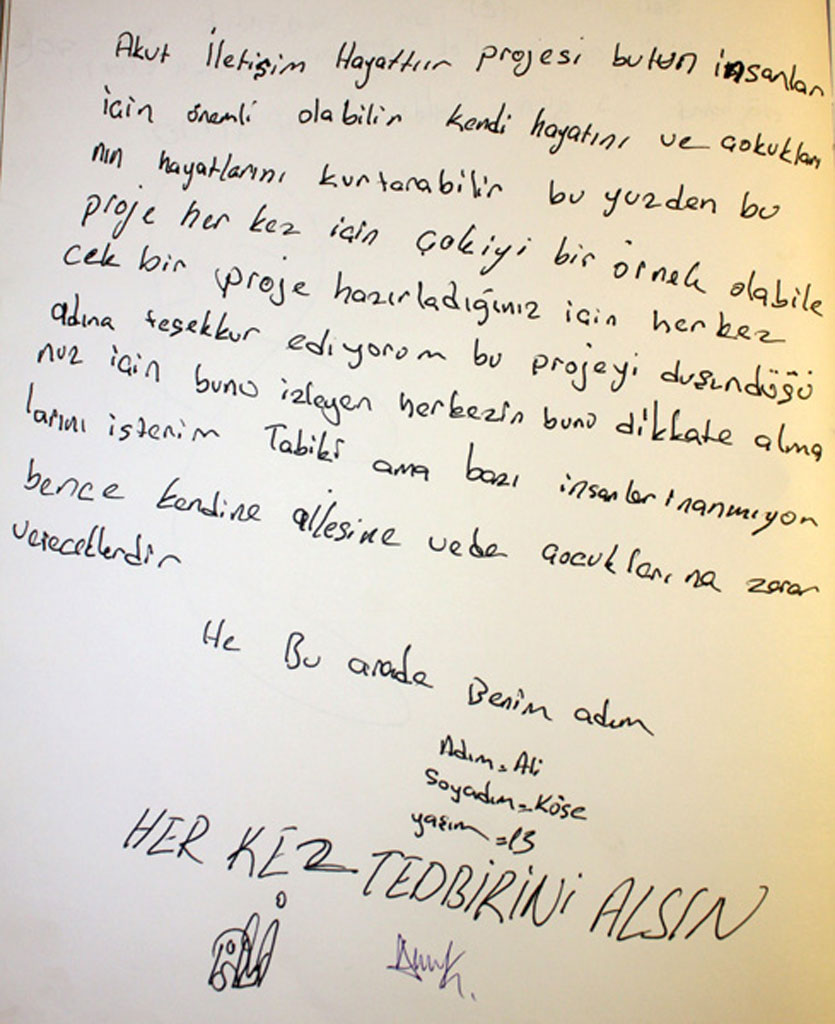 Akut İletişim Hayattır projesi butun insanlar
için önemli olabilir kendi hayatını ve çokukları
nın hayatlarını kurtarabilir bu yuzden bu
proje her kez için çokiyi bir örnek olabile
cek bir proje hazırladığınız için herkez
adına teşekkur ediyorum bu projeyi duşundüğü
nuz için bunu izleyen herkezin bunu dikkate alma
larını isterim Tabiki ama bazı insanlar inanmıyor
bence kendine ailesine vede çocuklarına zarar
vereceklerdir
He Bu arada Benim adım
Adım = Ali
Soyadım = Köse
yaşım = 13
HER KEZ TEDBİRİNİ ALSIN